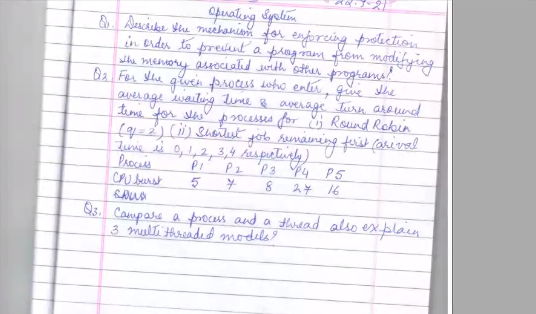 22.9-21
Operating System
Q1. Describe the mechanism for enforcing protection
in order to prevent a program from modifying
the memory associated with other programs?
Q2 For the given process who enter, give the
average waiting time & average turn around
time for the processes for (i) Round Robin
(q=2) (ii) Shortest job remaining first (arival
time is 0, 1, 2, 3, 4 respectively)
Process P1 P2 P3 P4 P5
CPU burst 5 7 8 27 16
Q3. Compare a process and a thread also explain
3 multithreaded models?